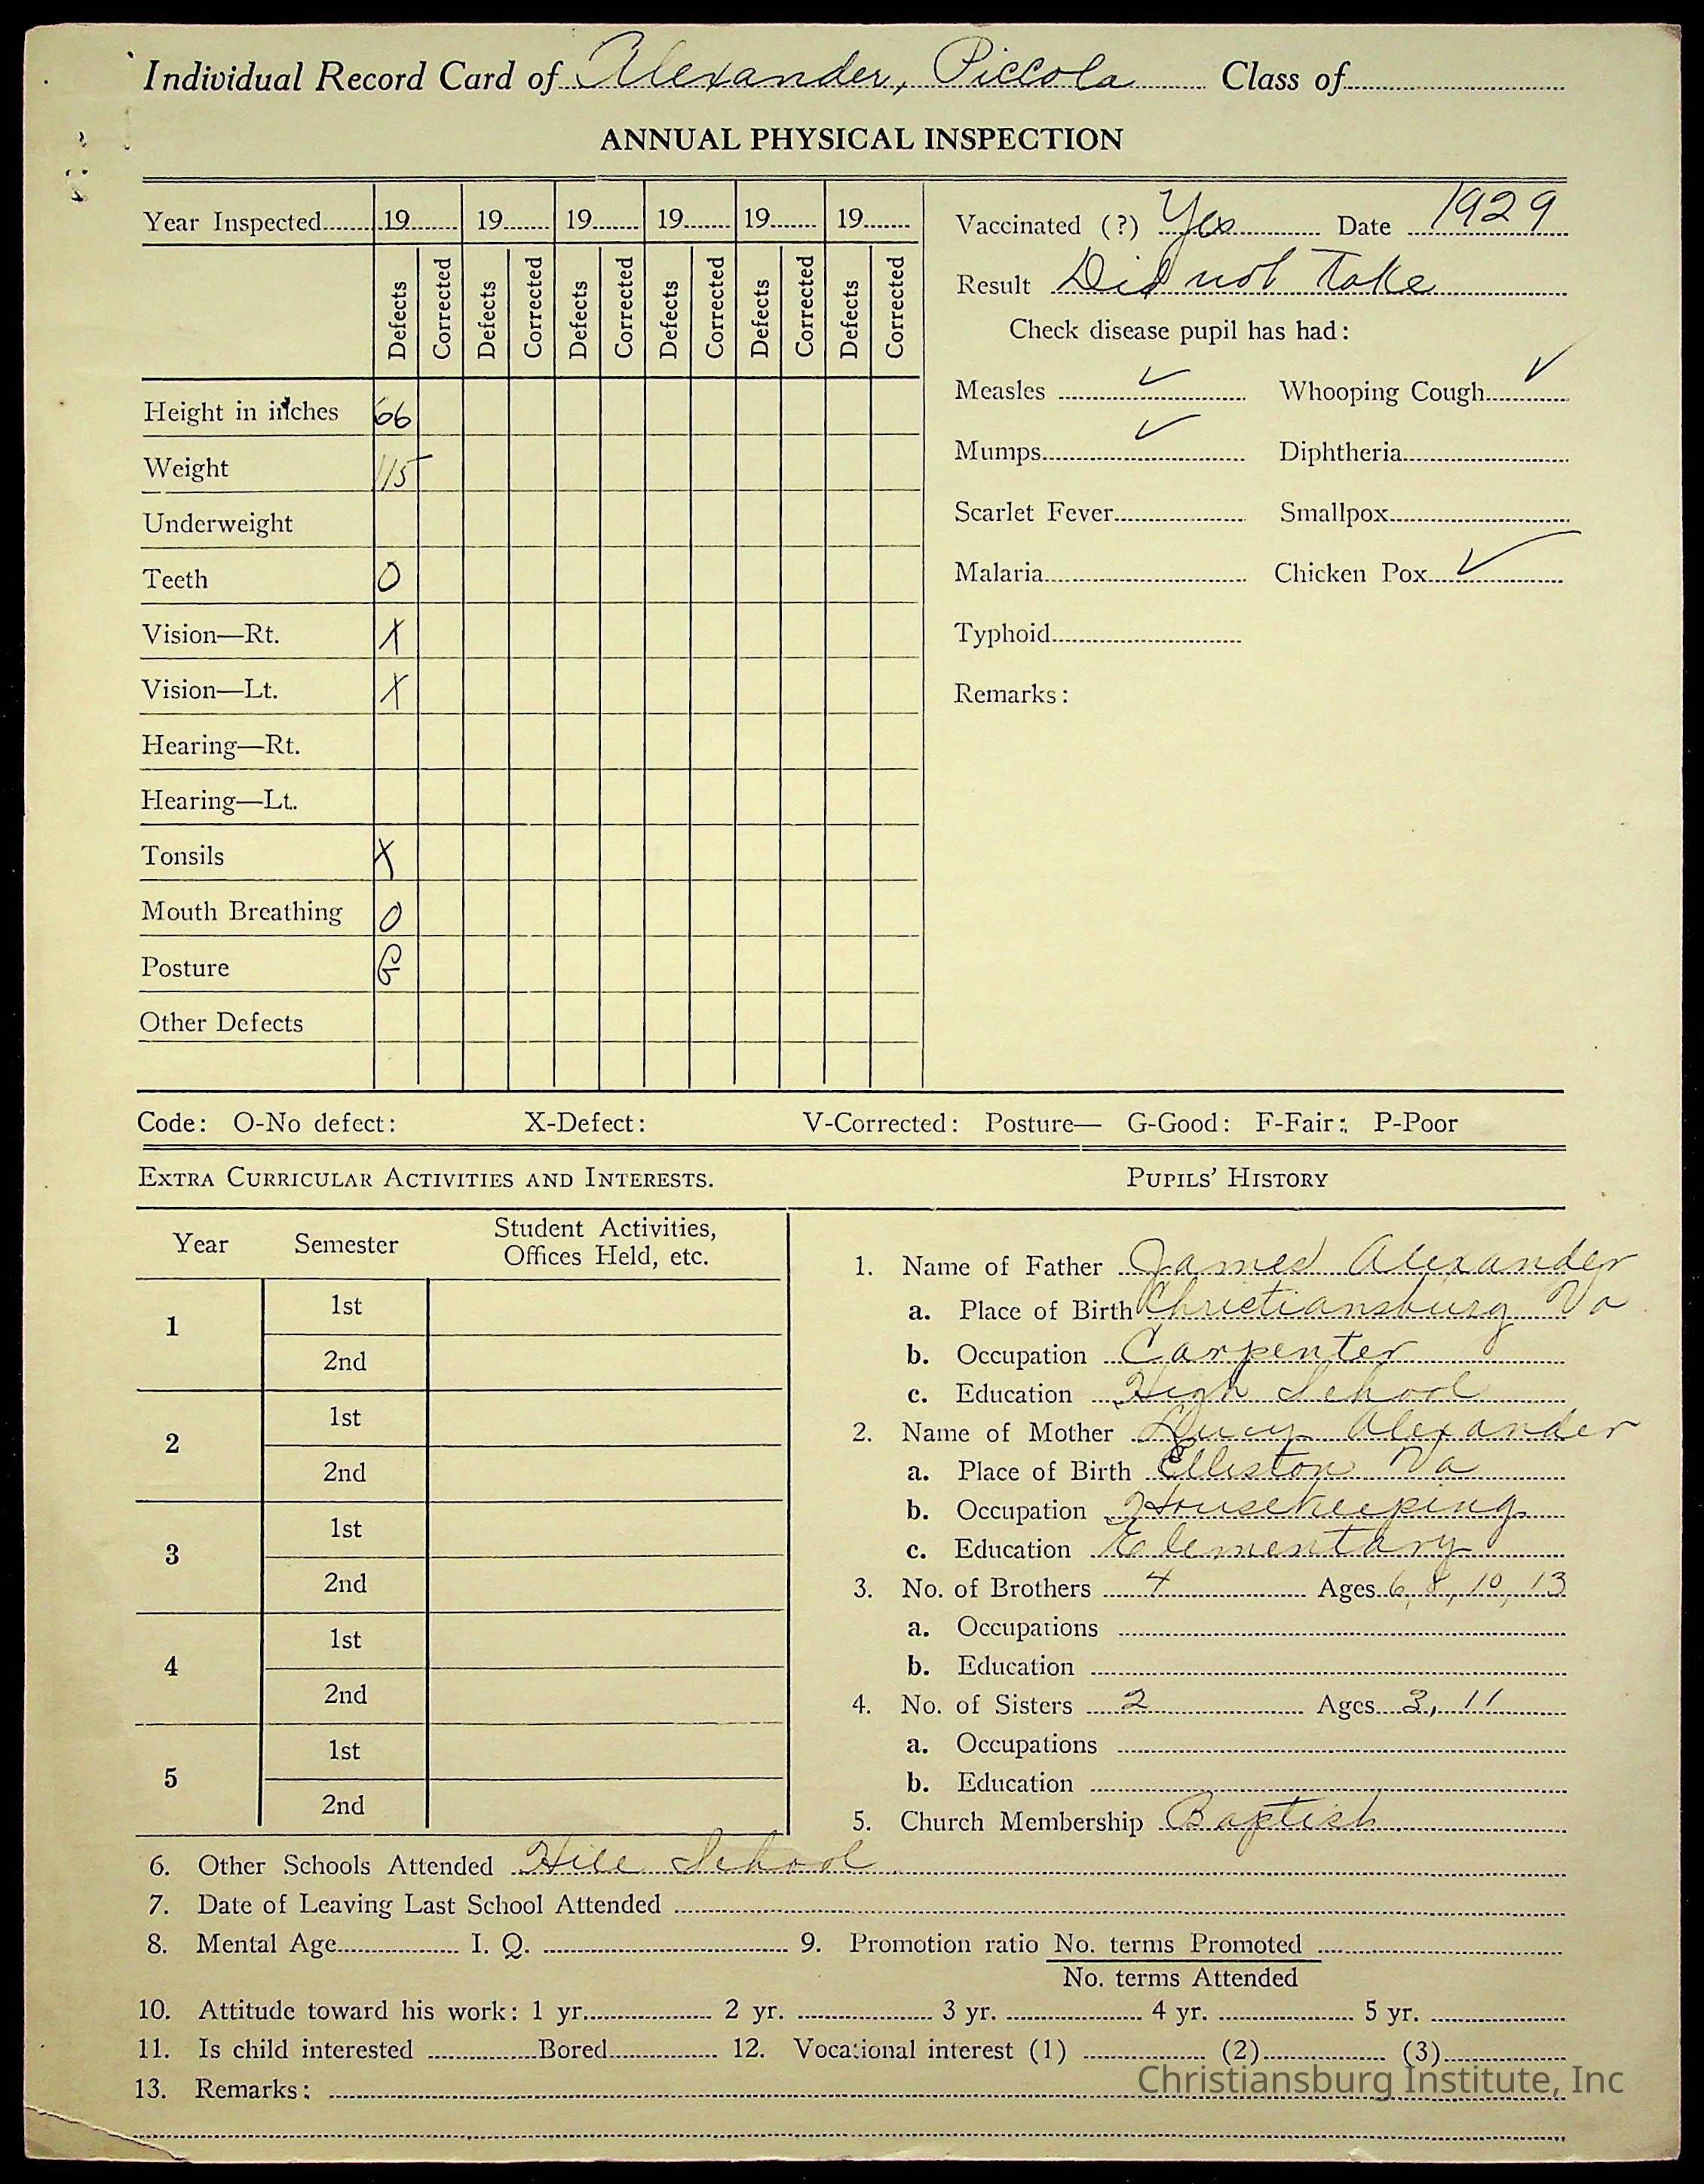 Individual Record Card of Alexander, Piccola Class of
ANNUAL PHYSICAL INSPECTION
Year Inspected 19 19 19 19 19 19
Defects Corrected Defects Corrected Defects Corrected Defects Corrected Defects Corrected Defects Corrected
Height in inches 66
Weight 115
Underweight
Teeth O
Vision—Rt. X
Vision—Lt. X
Hearing—Rt.
Hearing—Lt.
Tonsils X
Mouth Breathing O
Posture G
Other Defects
Vaccinated (?) Yes Date 1929
Result Did not Take
Check disease pupil has had:
Measles ✓ Whooping Cough ✓
Mumps ✓ Diphtheria
Scarlet Fever Smallpox
Malaria Chicken Pox ✓
Typhoid
Remarks:
Code: O-No defect: X-Defect: V-Corrected: Posture— G-Good: F-Fair: P-Poor
EXTRA CURRICULAR ACTIVITIES AND INTERESTS.
Year Semester Student Activities,
Offices Held, etc.
1 1st
2nd
2 1st
2nd
3 1st
2nd
4 1st
2nd
5 1st
2nd
PUPILS' HISTORY
1. Name of Father James Alexander
a. Place of Birth Christiansburg Va
b. Occupation Carpenter
c. Education High School
2. Name of Mother Lucy Alexander
a. Place of Birth Elliston Va
b. Occupation Housekeeping
c. Education Elementary
3. No. of Brothers 4 Ages 6, 8, 10, 13
a. Occupations
b. Education
4. No. of Sisters 2 Ages 3, 11
a. Occupations
b. Education
5. Church Membership Baptish
6. Other Schools Attended Hill School
7. Date of Leaving Last School Attended
8. Mental Age I. Q. 9. Promotion ratio No. terms Promoted
No. terms Attended
10. Attitude toward his work: 1 yr. 2 yr. 3 yr. 4 yr. 5 yr.
11. Is child interested Bored 12. Vocational interest (1) (2) (3)
13. Remarks:
Christiansburg Institute, Inc